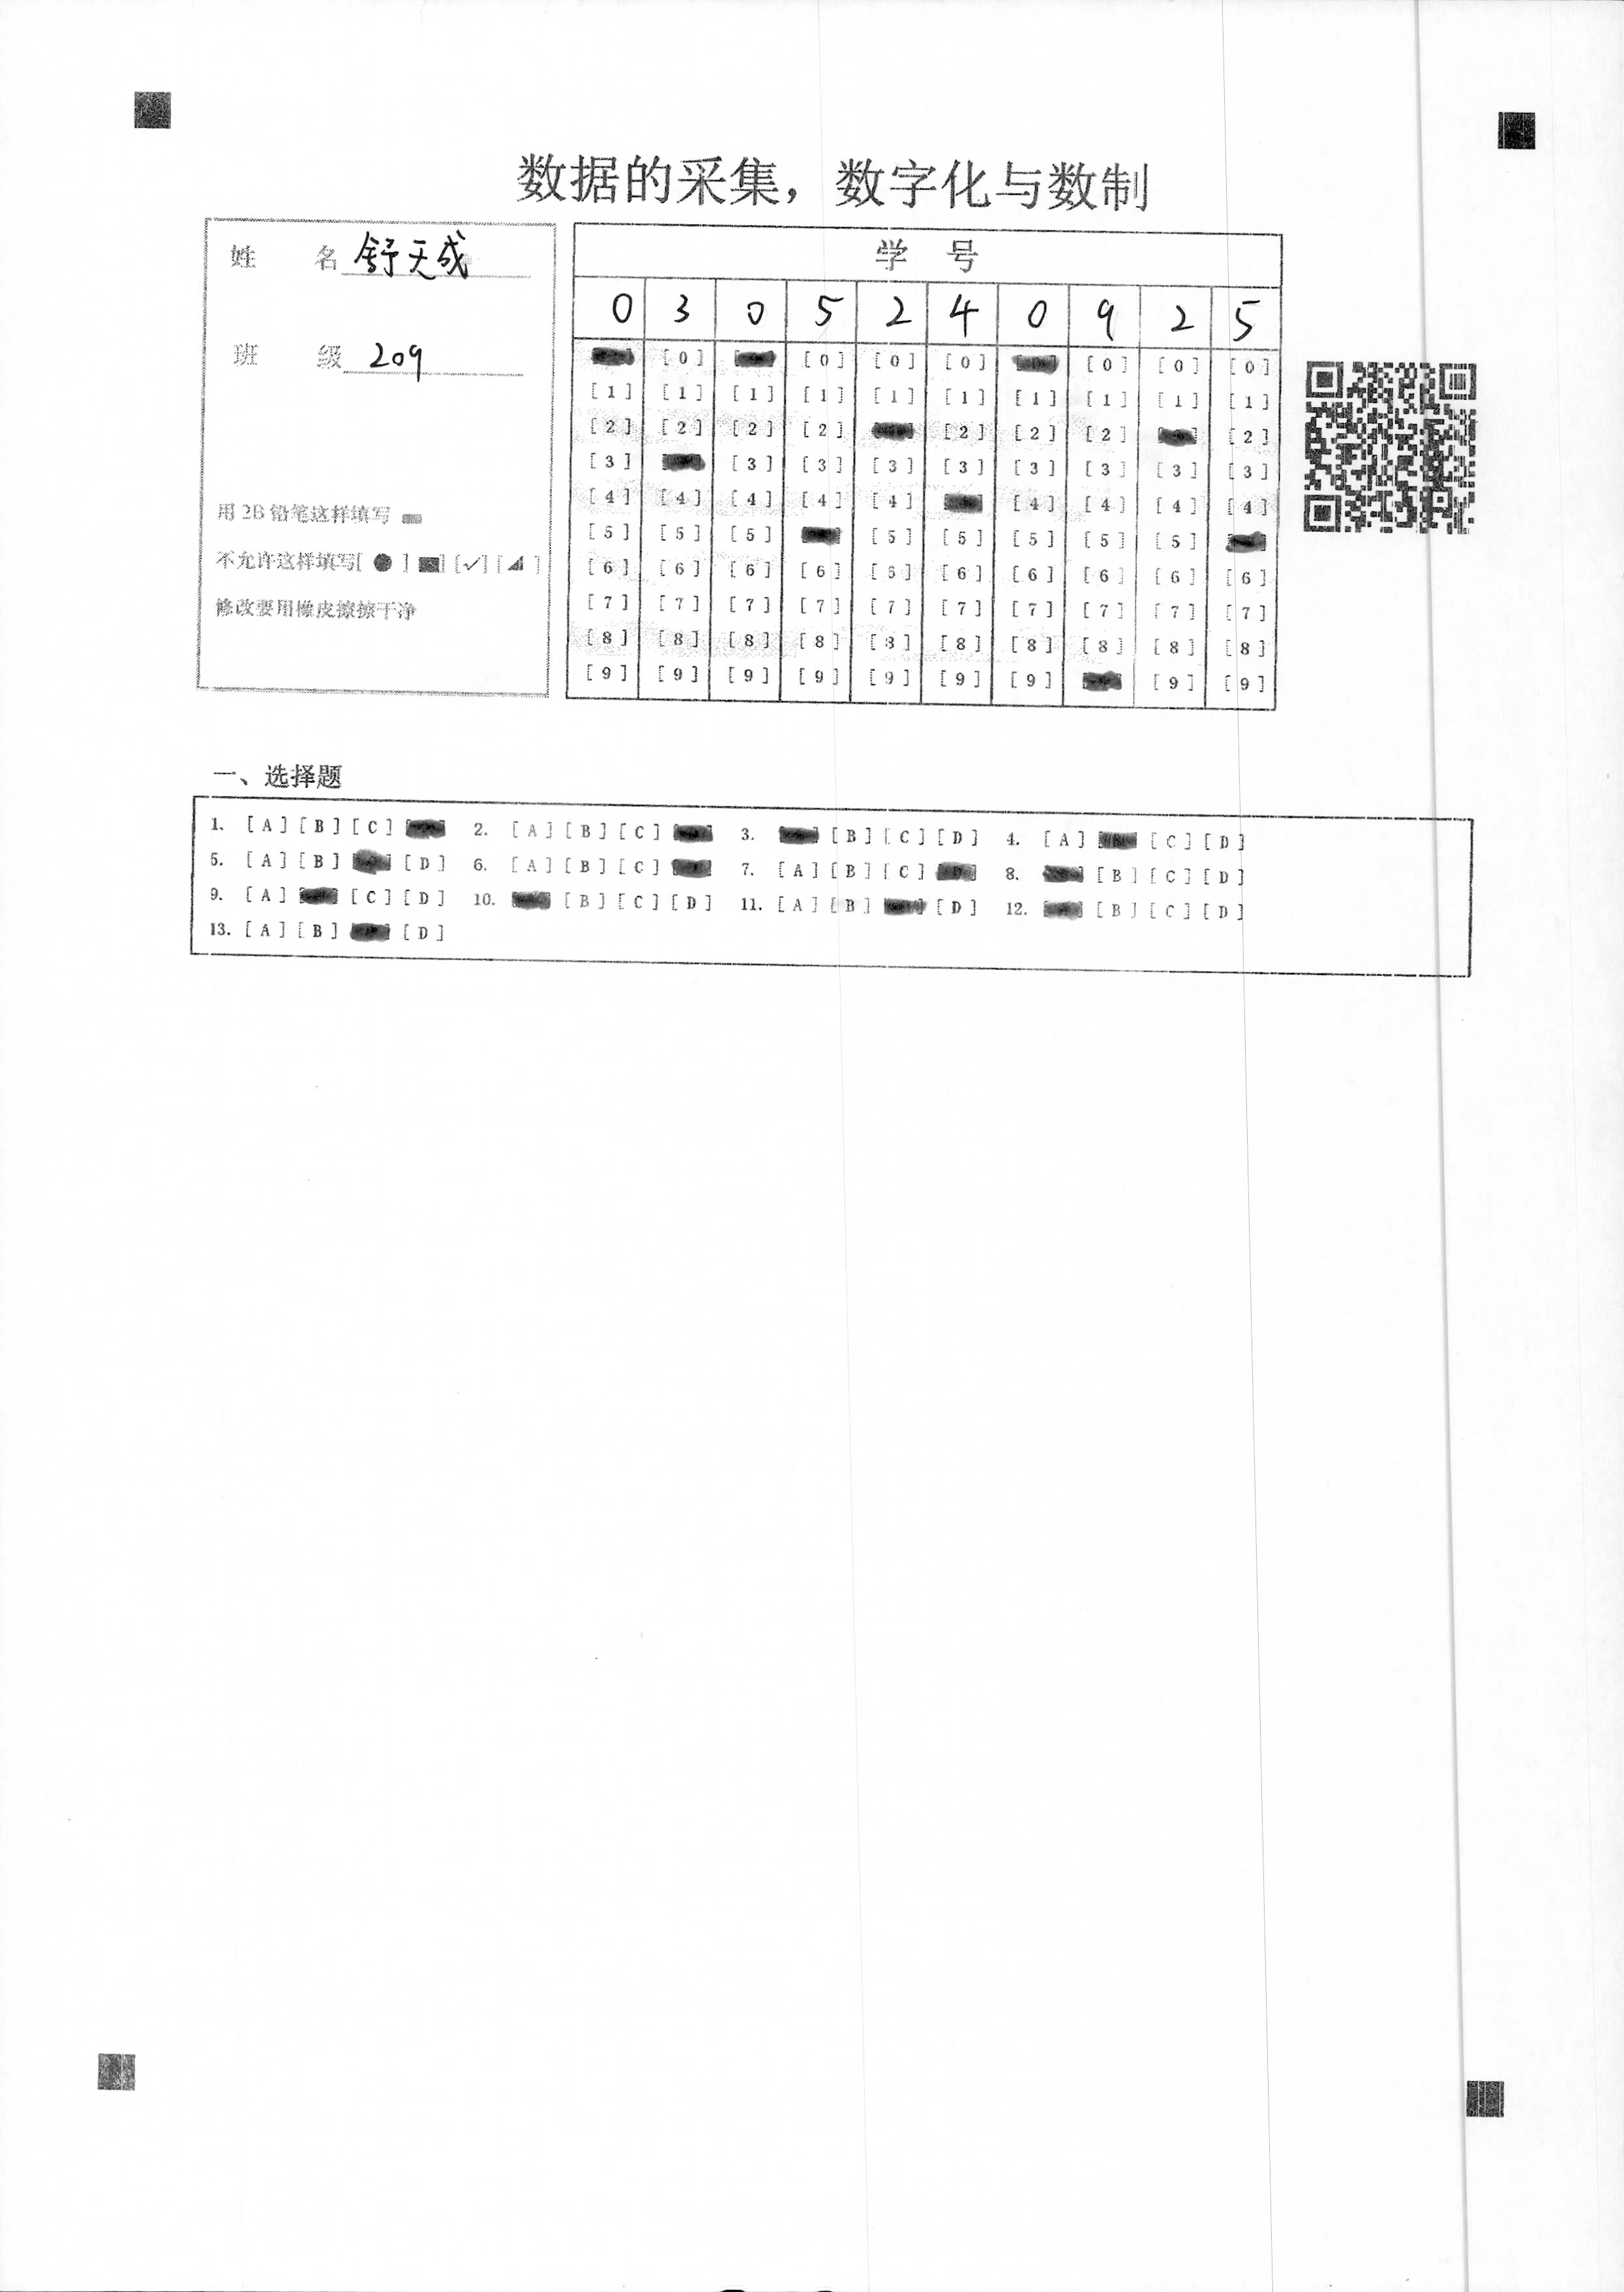 数据的采集，数字化与数制
姓 名 舒天成
班 级 209
用 2B 铅笔这样填写
不允许这样填写[ ● ] [■] [✓] [◢ ]
修改要用橡皮擦擦干净
学 号
0 3 0 5 2 4 0 9 2 5
[0] [0] [0] [0] [0] [0] [0]
[1] [1] [1] [1] [1] [1] [1] [1] [1] [1]
[2] [2] [2] [2] [2] [2] [2] [2]
[3] [3] [3] [3] [3] [3] [3] [3] [3]
[4] [4] [4] [4] [4] [4] [4] [4] [4]
[5] [5] [5] [5] [5] [5] [5] [5]
[6] [6] [6] [6] [6] [6] [6] [6] [6] [6]
[7] [7] [7] [7] [7] [7] [7] [7] [7] [7]
[8] [8] [8] [8] [8] [8] [8] [8] [8] [8]
[9] [9] [9] [9] [9] [9] [9] [9] [9]
一、选择题
1. [A] [B] [C] 2. [A] [B] [C] 3. [B] [C] [D] 4. [A] [C] [D]
5. [A] [B] [D] 6. [A] [B] [C] 7. [A] [B] [C] 8. [B] [C] [D]
9. [A] [C] [D] 10. [B] [C] [D] 11. [A] [B] [D] 12. [B] [C] [D]
13. [A] [B] [D]